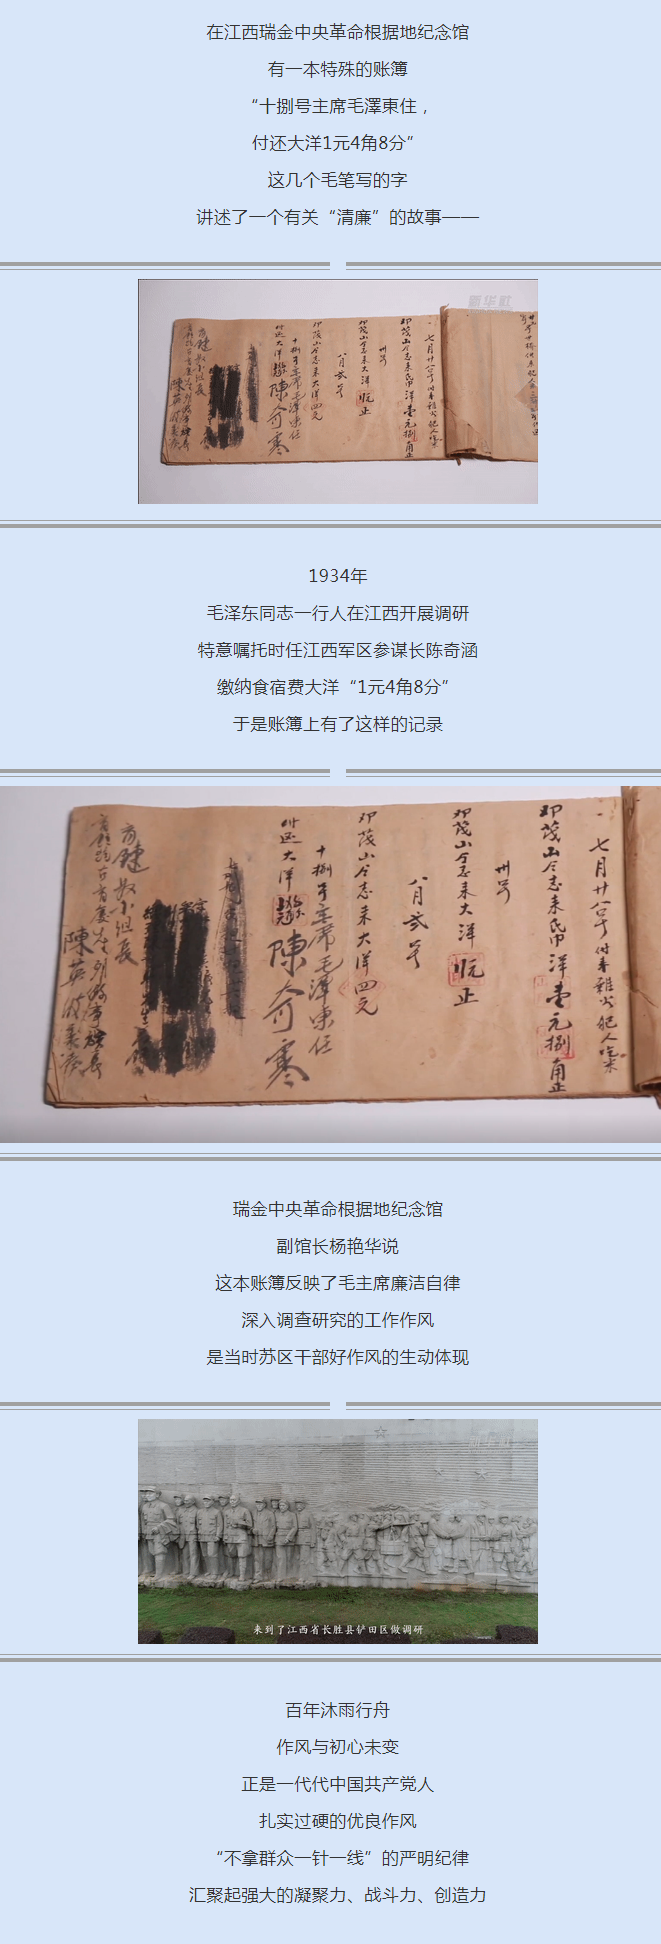 在江西瑞金中央革命根据地纪念馆
有一本特殊的账簿
“十捌号主席毛澤東住，
付还大洋1元4角8分”
这几个毛笔写的字
讲述了一个有关“清廉”的故事——
新华社
1934年
毛泽东同志一行人在江西开展调研
特意嘱托时任江西军区参谋长陈奇涵
缴纳食宿费大洋“1元4角8分”
于是账簿上有了这样的记录
七月廿八号付来
洋壹元捌角正
卅号
八月贰号
来大洋四元
十捌号主席毛泽东住
付还大洋
陈奇
瑞金中央革命根据地纪念馆
副馆长杨艳华说
这本账簿反映了毛主席廉洁自律
深入调查研究的工作作风
是当时苏区干部好作风的生动体现
来到了江西省长胜县铲田区做调研
百年沐雨行舟
作风与初心未变
正是一代代中国共产党人
扎实过硬的优良作风
“不拿群众一针一线”的严明纪律
汇聚起强大的凝聚力、战斗力、创造力